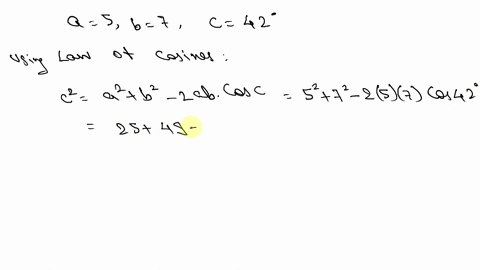 a=5, b=7, C=42°
Using Law of Cosines:
c²= a²+b²-2ab.Cosc = 5²+7²-2(5)(7) Cos42°
= 25+49-